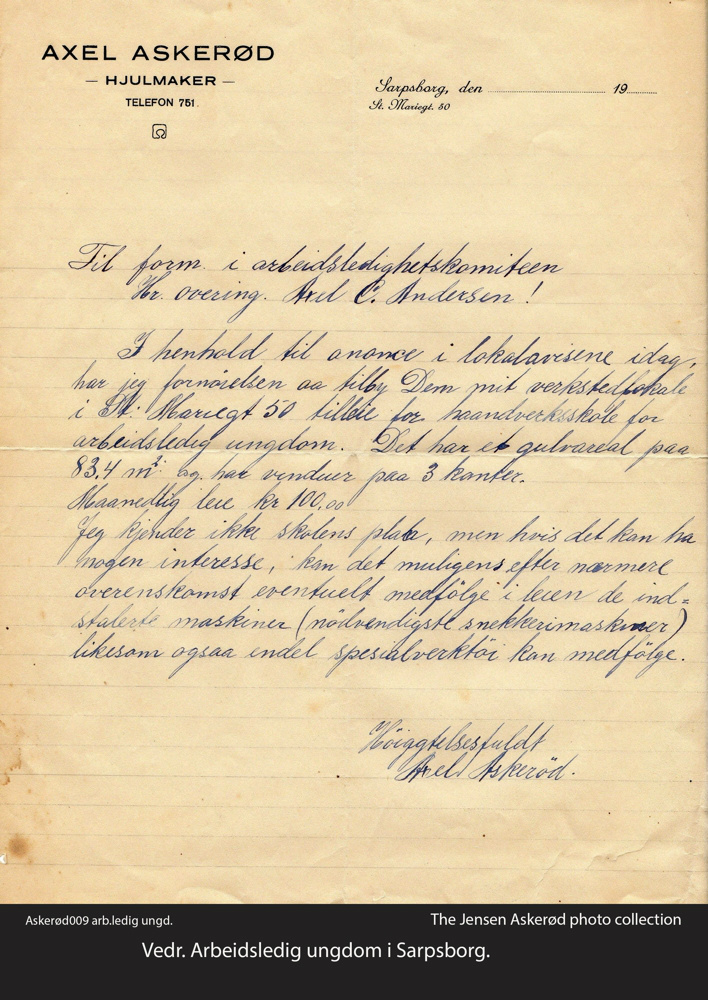 AXEL ASKERØD
— HJULMAKER —
TELEFON 751.
Sarpsborg, den ........................ 19........
St. Mariegt. 50
Til form. i arbeidsledighetskomiteen
Hr. overing. Axel C. Andersen!
I henhold til anonce i lokalavisene idag,
har jeg fornöielsen aa tilby Dem mit verkstedlokale
i St. Mariegt 50 tilleie for haandverksskole for
arbeidsledig ungdom. Det har et gulvareal paa
83.4 m² og har vinduer paa 3 kanter.
Maanedlig leie kr 100.00
Jeg kjender ikke skolens plan, men hvis det kan ha
nogen interesse, kan det muligens efter nærmere
overenskomst eventuelt medfölge i leien de ind=
stalerte maskiner (nödvendigste snekkerimaskiner)
likesom ogsaa endel spesialverktöi kan medfölge.
Höiagtelsesfuldt
Axel Askeröd.
Askerød009 arb.ledig ungd.
The Jensen Askerød photo collection
Vedr. Arbeidsledig ungdom i Sarpsborg.